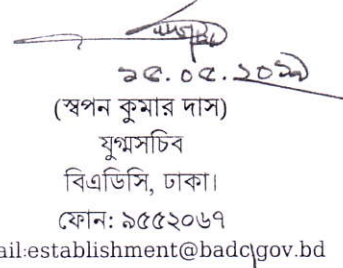 (স্বপন কুমার দাস)
যুগ্মসচিব
বিএডিসি, ঢাকা।
ফোন: ৯৫৫২০৬৭
ail:establishment@badc.gov.bd